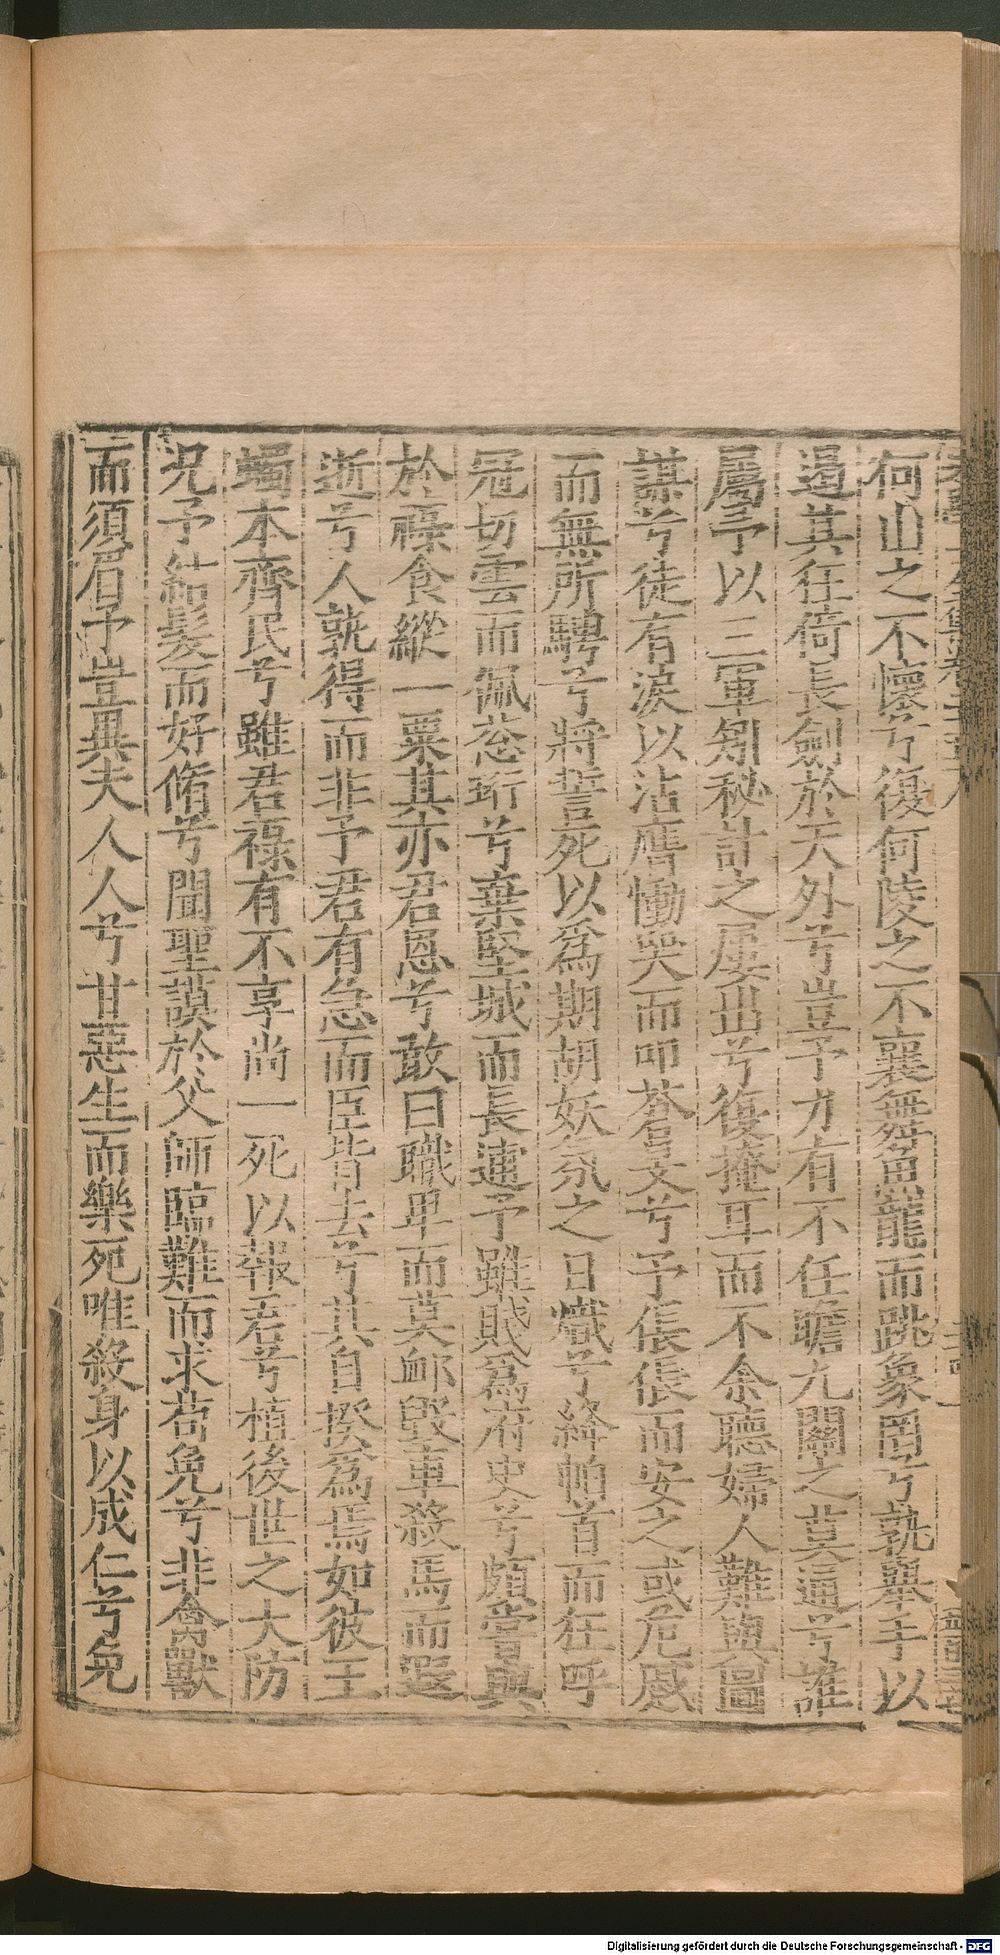 何山之不懷兮復何陵之不襄無笛龍而跳象罔兮孰褰手以
遏其狂倚長劍於天外兮豈予才有不任瞻九關之莫通兮誰
屬予以三軍芻秘計之屢出兮復掩耳而不余聽婦人難與圖
謀兮徒有淚以沾膺慟哭而叩蒼旻兮予倀倀而安之或危慼
而無所騁兮將誓死以為期胡妖氛之日熾兮絳帕首而狂呼
冠切雲而佩蔥珩兮棄堅城而長逋予雖賤為府史兮頗嘗與
於祿食縱一粟其亦君恩兮敢曰職卑而莫䘏毀車殺馬而遐
逝兮人孰得而非予君有急而臣皆去兮其自揆為焉如彼王
蠋本齊民兮雖君祿有不享尚一死以報君兮植後世之大防
况予結髮而好脩兮聞聖謨於父師臨難而求苟免兮非禽獸
而須眉予豈異夫人人兮甘惡生而樂死唯殺身以成仁兮免
Digitalisierung gefördert durch die Deutsche Forschungsgemeinschaft - DFG